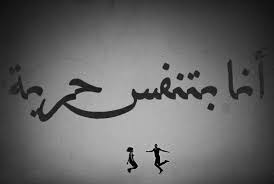 أنا بتنفس حرية